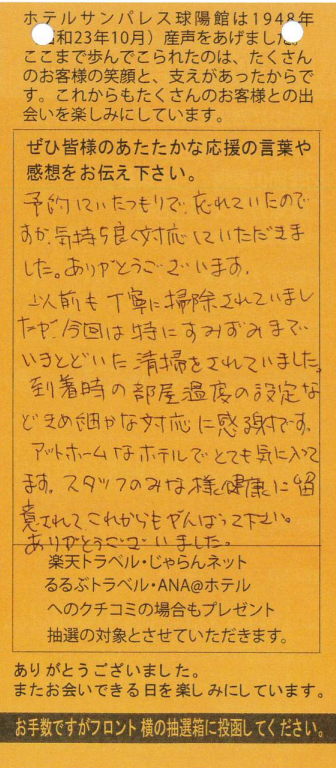 ホテルサンパレス球陽館は1948年
和23年10月）産声をあげました。
ここまで歩んでこられたのは、たくさん
のお客様の笑顔と、支えがあったからで
す。これからもたくさんのお客様との出
会いを楽しみにしています。
ぜひ皆様のあたたかな応援の言葉や
感想をお伝え下さい。
予約していたつもりで、忘れていたので
すが、気持ち良く対応していただきま
した。ありがとうございます。
以前も丁寧に掃除されていまし
たが、今回は特にすみずみまで
いきとどいた清掃をされていました。
到着時の部屋温度の設定な
どきめ細かな対応に感謝です。
アットホームなホテルでとても気に入って
ます。スタッフのみな様、健康に留
意されて、これからもがんばって下さい。
ありがとうございました。
楽天トラベル・じゃらんネット
るるぶトラベル・ANA@ホテル
へのクチコミの場合もプレゼント
抽選の対象とさせていただきます。
ありがとうございました。
またお会いできる日を楽しみにしています。
お手数ですがフロント横の抽選箱に投函してください。